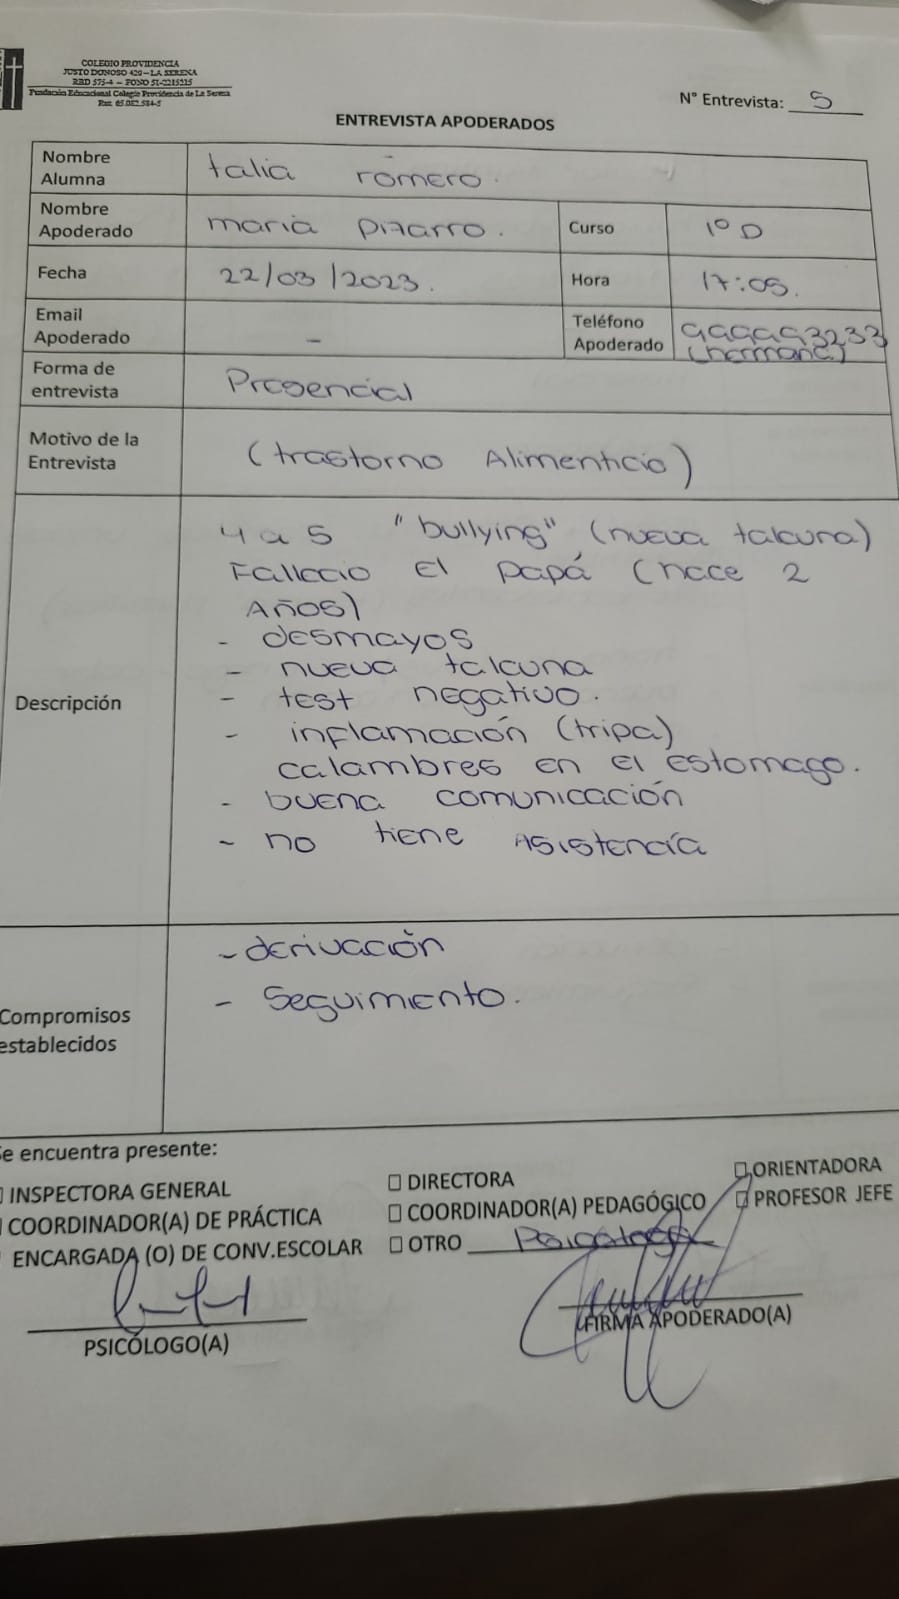 COLEGIO PROVIDENCIA
JUSTO DONOSO 420 – LA SERENA
RBD 575-4 – FONO 51-2215215
Fundación Educacional Colegio Providencia de La Serena
Rut: 65.082.584-5
N° Entrevista: 5
ENTREVISTA APODERADOS
Nombre Alumna talia romero.
Nombre Apoderado maria Pizarro. Curso 1° D
Fecha 22/03/2023. Hora 17:05.
Email Apoderado - Teléfono Apoderado 999993233 (hermana)
Forma de entrevista Presencial
Motivo de la Entrevista (trastorno Alimenticio)
Descripción
4 a 5 "bullying" (nueva talcuna)
Fallecio El papá (hace 2
AÑOS)
- desmayos
- nueva talcuna
- test negativo.
- inflamación (tripa)
calambres en el estomago.
- buena comunicación
- no tiene Asistencía
Compromisos establecidos
- derivación
- Seguimiento.
Se encuentra presente:
INSPECTORA GENERAL ☐ DIRECTORA ☐ ORIENTADORA
COORDINADOR(A) DE PRÁCTICA ☐ COORDINADOR(A) PEDAGÓGICO ☐ PROFESOR JEFE
ENCARGADA (O) DE CONV.ESCOLAR ☐ OTRO Psicologa
PSICÓLOGO(A) FIRMA APODERADO(A)